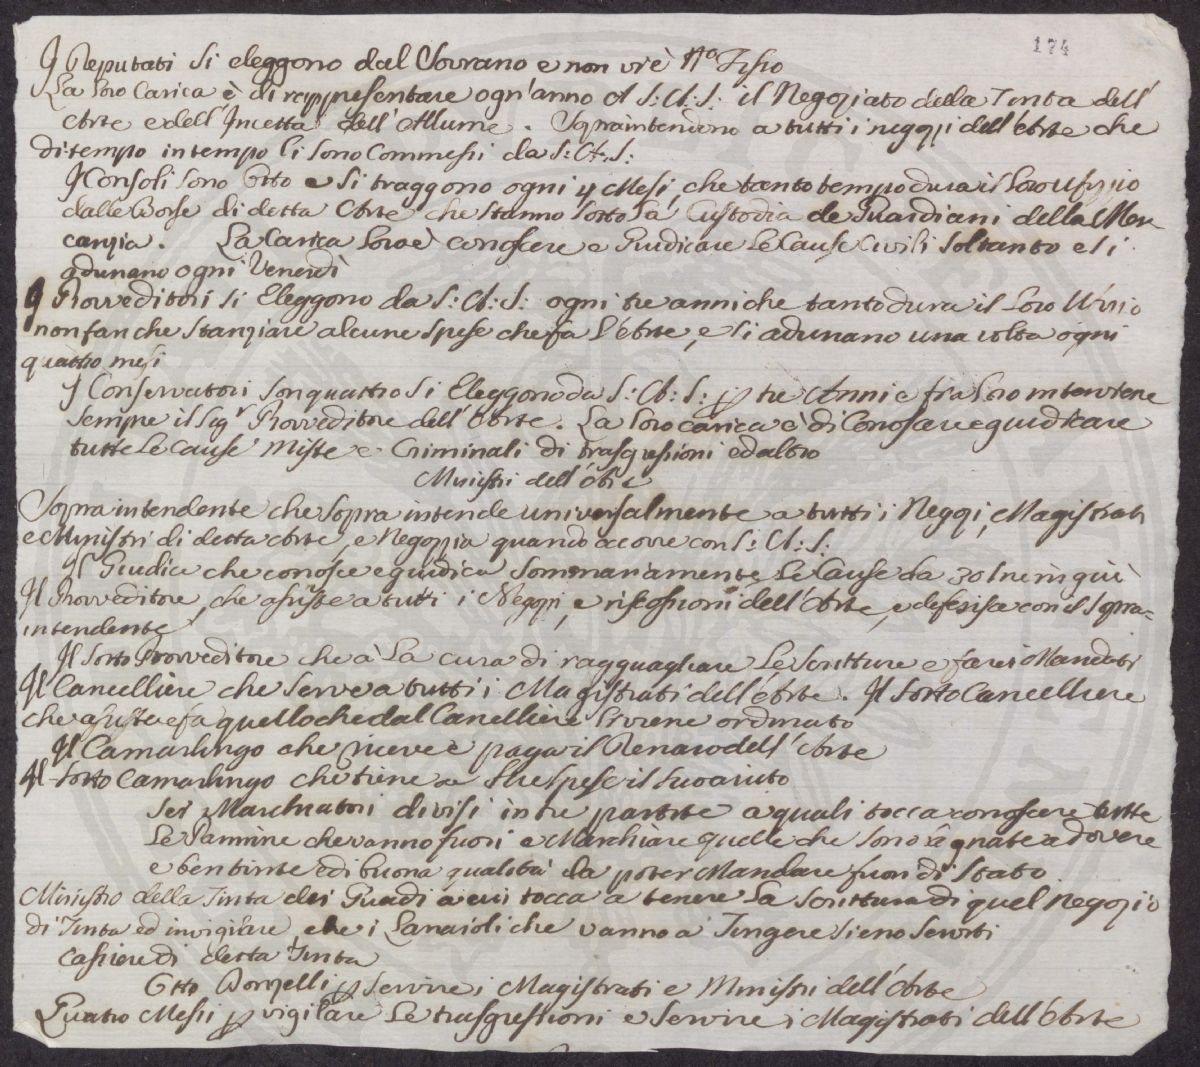 174
I Deputati si eleggono dal Sovrano e non vi è N.o Fisso
La loro Carica è di rappresentare ogn'anno A S: A: S: il Negoziato della Tinta dell'
Arte e dell'Incetta dell'Allume. Sopraintendono a tutti i negozi dell'Arte che
di tempo in tempo li sono Commessi da S: A: S:
I Consoli sono Otto e si traggono ogni 4 Mesi, che tanto tempo dura il loro Ufizzio
dalle Borse di detta Arte che stanno sotto la Custodia de Guardiani della Mer
canzia. La Carica loro è conoscere e Giudicare Le Cause Civili soltanto e si
adunano ogni Venerdì
I Provveditori si Eleggono da S: A: S: ogni tre anni che tanto dura il loro Ufizio
non fan che stanziare alcune spese che fa l'Arte, e si adunano una volta ogni
quattro mesi
I Conservatori son quattro si Eleggono da S: A: S: p tre Anni e fra loro interviene
sempre il Sigr Provveditore dell'Arte. La loro carica è di Conoscere e guidicare
tutte Le Cause Miste e Criminali di trasgressioni ed altro
Ministri dell'Arte
Sopraintendente che sopraintende universalmente a tutti i Negozi, Magistrati
e Ministri di detta Arte, e Negozzia quando accorre con S: A: S:
Il Giudice che conosce e guidica sommariamente Le Cause da 30 lire in giù
Il Provveditore, che assiste a tutti i Negozzi, e riscossioni dell'Arte, e deferisce con il Sopra-
intendente
Il sotto Provveditore che à La cura di ragguagliare Le Scritture e fare i Mandati
Il Cancelliere che serve a tutti i Magistrati dell'Arte. Il sotto Cancelliere
che assiste e fa quello che dal Canelliere li viene ordinato
Il Camarlingo che riceve e paga il Denaro dell'Arte
Il sotto Camarlingo che tiene a sue spese il suo aiuto
Sei Marchiatori divisi in tre partite a quali tocca conoscere tutte
Le Pannine che vanno fuori e Marchiare quelle che sono segnate a dovere
e ben tinte e di buona qualità da poter Mandare fuori di Stato
Ministro della Tinta dei Guadi a cui tocca a tenere La Scrittura di quel Negozio
di Tinta ed invigilare che i Lanaioli che vanno a Tingere sieno serviti
Cassiere di detta Tinta
Otto Donzelli p servire i Magistrati e Ministri dell'Arte
Quatro Messi p vigilare Le trasgressioni e servire i Magistrati dell'Arte